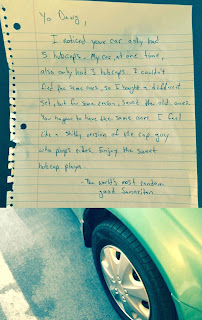 Yo Dawg,
I noticed your car only had
3 hubcaps. My car, at one time,
also only had 3 hubcaps. I couldn't
find the same ones, so I bought a different
set, but for some reason, saved the old ones.
You happen to have the same ones. I feel
like a shitty version of the cap guy
who pimps rides. Enjoy the sweet
hubcap playa.
-The world's most random
good samaritan